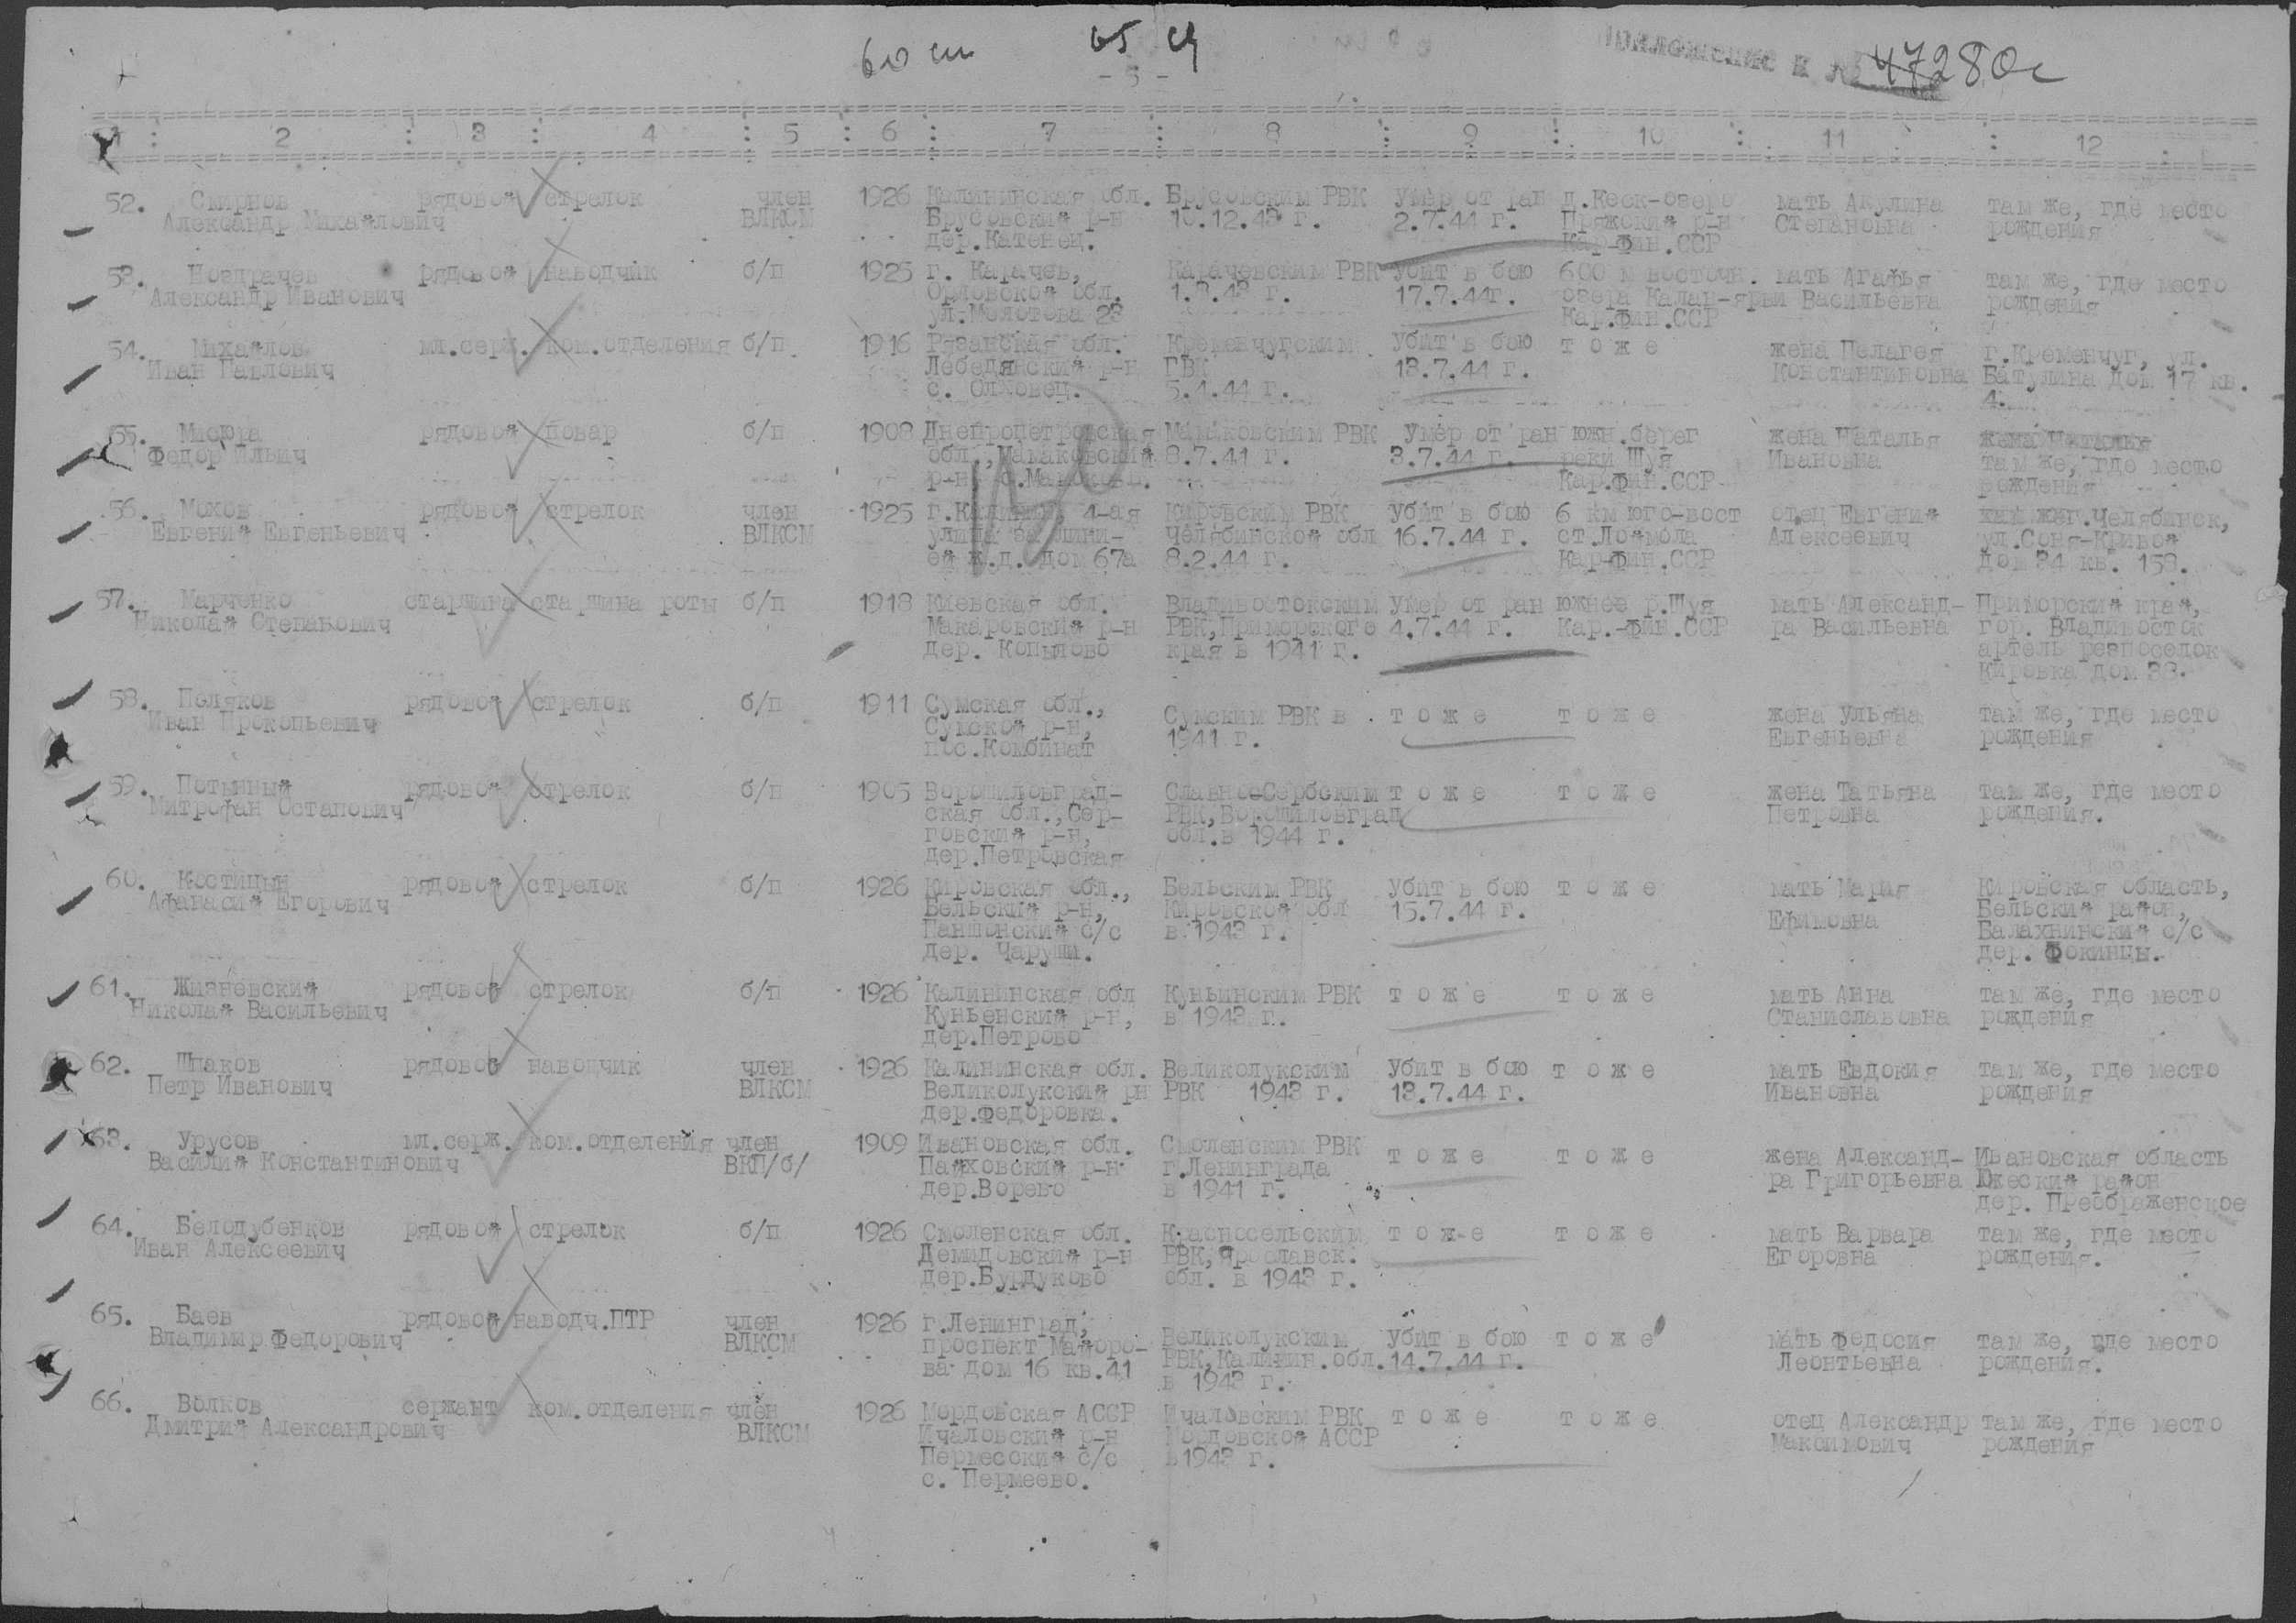 65 сд
- 5 -
Приложение к № 47280с
1 : 2 : 3 : 4 : 5 : 6 : 7 : 8 : 9 : 10 : 11 : 12
52. Смирнов рядовой стрелок член 1926 Калининская обл. Брусовским РВК Умер от ран д.Кеск-озеро мать Акулина там же, где место
Александр Михайлович ВЛКСМ Брусовский р-н 10.12.43 г. 2.7.44 г. Пряжский р-н Степановна рождения
дер.Катенец. Кар-Фин.ССР
53. Ноздрачев рядовой наводчик б/п 1925 г. Карачев, Карачевским РВК Убит в бою 600 м восточн. мать Агафья там же, где место
Александр Иванович Орловской обл. 17.7.44г. озера Калан-ярви Васильевна рождения
ул.Молотова 23 Кар.Фин.ССР
54. Михайлов мл.серж. ком.отделения б/п 1916 Рязанская обл. Кременчугским Убит в бою т о ж е жена Пелагея г.Кременчуг, ул.
Иван Павлович Лебедянский р-н ГВК 13.7.44 г. Константиновна Батулина дом 17 кв.
с. Ольховец. 5.1.44 г. 4.
55. Мисюра рядовой повар б/п 1908 Днепропетровская Мамаковским РВК Умер от ран южн.берег жена Наталья жена Наталья
Федор Ильич обл., Мамаковский 8.7.41 г. 3.7.44 г. реки Шуя Ивановна там же, где место
р-н, Кар.Фин.ССР рождения
56. Мохов рядовой стрелок член 1925 4-ая Кировским РВК Убит в бою 6 км юго-вост отец Евгений г.Челябинск,
Евгений Евгеньевич ВЛКСМ улица Челябинской обл 16.7.44 г. ст.Лоймола Алексеевич ул.Соня-Кривой
ей ж.д. дом 67а 8.2.44 г. Кар-Фин.ССР дом 34 кв. 158.
57. Марченко старшина старшина роты б/п 1918 Киевская обл. Владивостокским Умер от ран южнее р.Шуя мать Александ- Приморский край,
Николай Степанович Макаровский р-н РВК,Приморского 4.7.44 г. Кар.-Фин.ССР ра Васильевна гор. Владивосток
дер. Копылово края в 1941 г. артель резпоселок
Кировка дом 33.
58. Поляков рядовой стрелок б/п 1911 Сумская обл., Сумским РВК в т о ж е т о ж е жена Ульяна там же, где место
Иван Прокопьевич Сумской р-н, 1941 г. Евгеньевна рождения
пос.Комбинат
59. Потынный рядовой стрелок б/п 1905 Ворошиловград- СлавноеСербским т о ж е т о ж е жена Татьяна там же, где место
Митрофан Остапович ская обл.,Сер- РВК,Ворошиловград Петровна рождения.
говский р-н, обл.в 1944 г.
дер.Петровская
60. Костицын рядовой стрелок б/п 1926 Кировская обл., Бельским РВК Убит в бою т о ж е мать Мария Кировская область,
Афанасий Егорович Бельский р-н, Кировской обл 15.7.44 г. Ефимовна Бельский район,
Паншонский с/с в 1943 г. Балахнинский с/с
дер. Чаруши. дер. Фокинцы.
61. Жизневский рядовой стрелок б/п 1926 Калининская обл Куньинским РВК т о ж е т о ж е мать Анна там же, где место
Николай Васильевич Куньенский р-н, в 1943 г. Станиславовна рождения
дер.Петрово
62. Шпаков рядовой наводчик член 1926 Калининская обл. Великолукским Убит в бою т о ж е мать Евдокия там же, где место
Петр Иванович ВЛКСМ Великолукский рн РВК 1943 г. 13.7.44 г. Ивановна рождения
дер.Федоровка.
63. Урусов мл.серж. ком.отделения член 1909 Ивановская обл. Смоленским РВК т о ж е т о ж е жена Александ- Ивановская область
Василий Константинович ВКП/б/ Пайховский р-н г.Ленинграда ра Григорьевна Южеский район
дер.Ворево в 1941 г. дер. Преображенское
64. Белодубенков рядовой стрелок б/п 1926 Смоленская обл. Красносельским т о ж е т о ж е мать Варвара там же, где место
Иван Алексеевич Демидовский р-н РВК,Ярославск. Егоровна рождения.
дер.Бурдуково обл. в 1943 г.
65. Баев рядовой наводч.ПТР член 1926 г.Ленинград, Великолукским Убит в бою т о ж е мать Федосия там же, где место
Владимир Федорович ВЛКСМ проспект Майоро- РВК,Калинин.обл. 14.7.44 г. Леонтьевна рождения.
ва дом 16 кв.41 в 1943 г.
66. Волков сержант ком.отделения член 1926 Мордовская АССР Ичаловским РВК т о ж е т о ж е отец Александр там же, где место
Дмитрий Александрович ВЛКСМ Ичаловский р-н Мордовской АССР Максимович рождения
Пермесский с/с в 1943 г.
с. Пермеево.